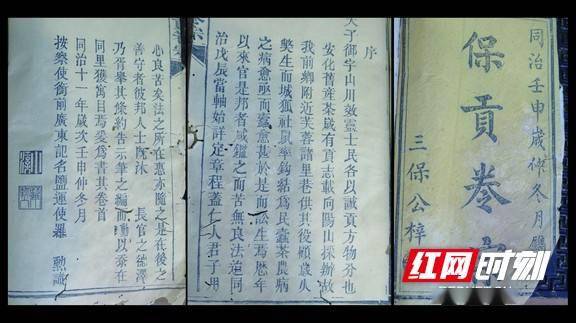 同治壬申歲仲冬月
保貢卷
三保公梓
序
天子御宇山川效靈士民各以誠貢方物分也
安化舊產茶歲有貢志載向陽山採辦故
我前鄉附近芙蓉諸里巷供其役顧歲久
獘生而城狐社鼠牽鉤結為民蠹茶農病
之病愈亟而蠹愈甚於是而訟生焉歷年
以來官是邦者咸鑑之而苦無良法迨同
治戊辰當軸始詳定章程蓋仁人君子用
心良苦矣法之所在惠亦隨之是在後之
善守者彼邦人士既沐 長官之德澤
乃胥舉其條約告示筆之編而以余在
同里獲寓目焉爰為書其卷首
同治十一年歲次壬申仲冬月
按察使銜前廣東記名鹽運使羅 勲
红网时刻